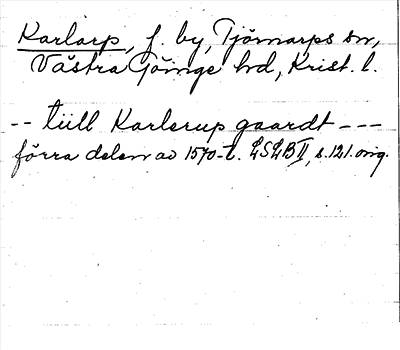 Karlarp, f. by, Tjörnarps sn,
Västra Göinge hd, Krist. l.
-- tiill Karlerup gaardt ---
förra delen av 1570-t. LSLB II, s. 121. orig.